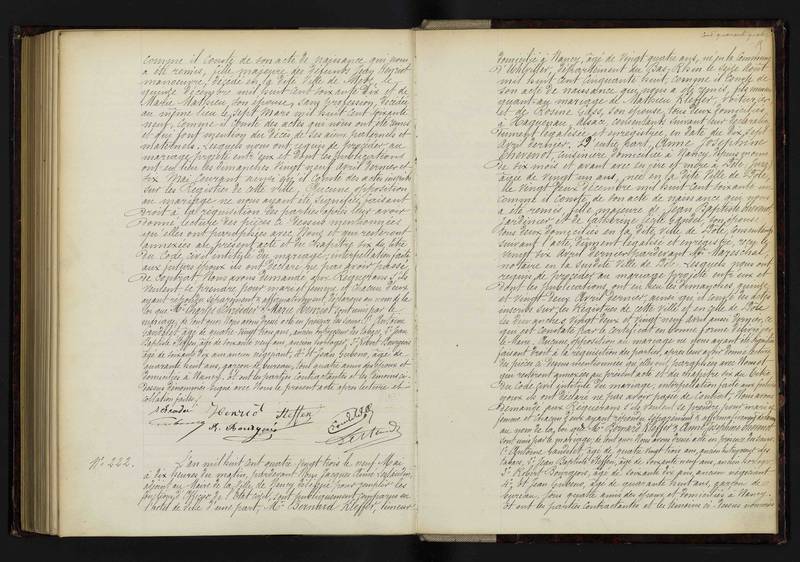 comme il conste de son acte de naissance qui nous
a été remis, fille majeure des défunts Jean
manoeuvre, décédé en la dite Ville de Metz le
quinze Décembre mil huit cent soixante dix et de
Marie Mathieu son épouse, sans profession, décédée
au même lieu le sept Mars mil huit cent soixante
neuf, comme il conste des actes qui nous ont été remis
et qui font mention du décès de ses aïeux paternels et
maternels. Lesquels nous ont requis de procéder au
mariage projeté entre eux et dont les publications
ont eu lieu les dimanches vingt neuf Avril dernier et
six Mai courant, ainsi qu'il conste des actes inscrits
sur les Registres de cette ville. Aucune opposition
au mariage ne nous ayant été signifiée, faisant
droit à la réquisition des parties, après leur avoir
donné lecture des pièces ci-dessus mentionnées
qu'elles ont paraphées avec Nous et qui resteront
annexées au présent acte et du chapitre six du titre
du Code civil intitulé du mariage; interpellation faite
aux futurs époux ils ont déclaré ne pas avoir passé
de Contrat. Nous avons demandé aux Requérants s'ils
veulent se prendre pour mari et femme et chacun d'eux
ayant répondu séparément & affirmativement, déclarons au nom de la
loi que Mr Charles Schroeder & Marie Henriot sont unis par le
mariage, de tout quoi Nous avons dressé acte en présence des sieurs
âgé de quatre vingt trois ans, ancien nettoyeur des tabacs, 2° Jean
Baptiste Steffen, âgé de soixante neuf ans, ancien horloger, 3° Robert Bourgeois
âgé de soixante dix ans, ancien négociant, 4° et Jean Gubens, âgé de
quarante huit ans, garçon de bureau, tous quatre amis des époux et
domiciliés à Nancy. Et ont les parties contractantes et les témoins ci-
dessus dénommés signé avec Nous le présent acte après lecture et
collation faites.
Henriot Steffen
R. Bourgeois
N° 222.
L'an mil huit cent quatre vingt trois le neuf Mai
à dix heures du matin, pardevant Nous Jacques
adjoint au Maire de la Ville de Nancy délégué pour remplir les
fonctions d'Officier de l'Etat civil, sont publiquement comparus en
l'hôtel de ville d'une part, Mr Bernard Kleffer, tanneur
domicilié à Nancy, âgé de vingt quatre ans, né en la Commune
d'Uhlwiller, département du Bas-Rhin le seize Août
mil huit cent cinquante huit, comme il conste de
son acte de naissance qui nous a été remis, fils
quant au mariage de Mathieu Kleffer, voiturier
et de Rosine Glass, son épouse, tous deux domiciliés
à Haguenau, Alsace, consentant suivant leur déclaration
dûment légalisée et enregistrée, en date du dix sept
Avril dernier. D'autre part, Anne Joséphine
Thevenot, cuisinière domiciliée à Nancy depuis moins
de six mois et avant avec ses père et mère à Dole (Jura)
âgée de vingt un ans, née en la dite Ville de Dole,
le vingt deux Décembre mil huit cent soixante un
comme il conste de son acte de naissance qui nous
a été remis, fille majeure de Jean Baptiste Thevenot,
et de Catherine son épouse,
tous deux domiciliés en la dite Ville de Dole, consentant
suivant l'acte, dûment légalisé et enregistré, reçu le
vingt six Avril dernier pardevant Me Maréchal,
notaire en la susdite Ville de Dole. Lesquels nous ont
requis de procéder au mariage projeté entre eux et
dont les publications ont eu lieu les dimanches quinze
et vingt deux Avril dernier, ainsi qu'il conste des actes
inscrits sur les Registres de cette ville et en celle de Dole
les dimanches vingt deux et vingt neuf Avril aussi dernier, ce
qui est constaté par le certificat en bonne forme délivré par
le Maire. Aucune opposition au mariage ne nous ayant été signifiée
faisant droit à la réquisition des parties, après leur avoir donné lecture
des pièces ci-dessus mentionnées qu'elles ont paraphées avec Nous et
qui resteront annexées au présent acte et du chapitre six du titre
du Code civil intitulé du mariage, interpellation faite aux futurs
époux ils ont déclaré ne pas avoir passé de Contrat. Nous avons
demandé aux Requérants s'ils veulent se prendre pour mari et
femme et chacun d'eux ayant répondu séparément & affirmativement, déclarons
au nom de la loi que Mr Bernard Kleffer & Anne Joséphine Thevenot
sont unis par le mariage, de tout quoi Nous avons dressé acte en présence des sieurs
1° Antoine âgé de quatre vingt trois ans, ancien nettoyeur des
tabacs, 2° Jean Baptiste Steffen, âgé de soixante neuf ans, ancien horloger,
3° Robert Bourgeois, âgé de soixante dix ans, ancien négociant
4° et Jean Gubens, âgé de quarante huit ans, garçon de
bureau, tous quatre amis des époux et domiciliés à Nancy.
Et ont les parties contractantes et les témoins ci-dessus dénommés